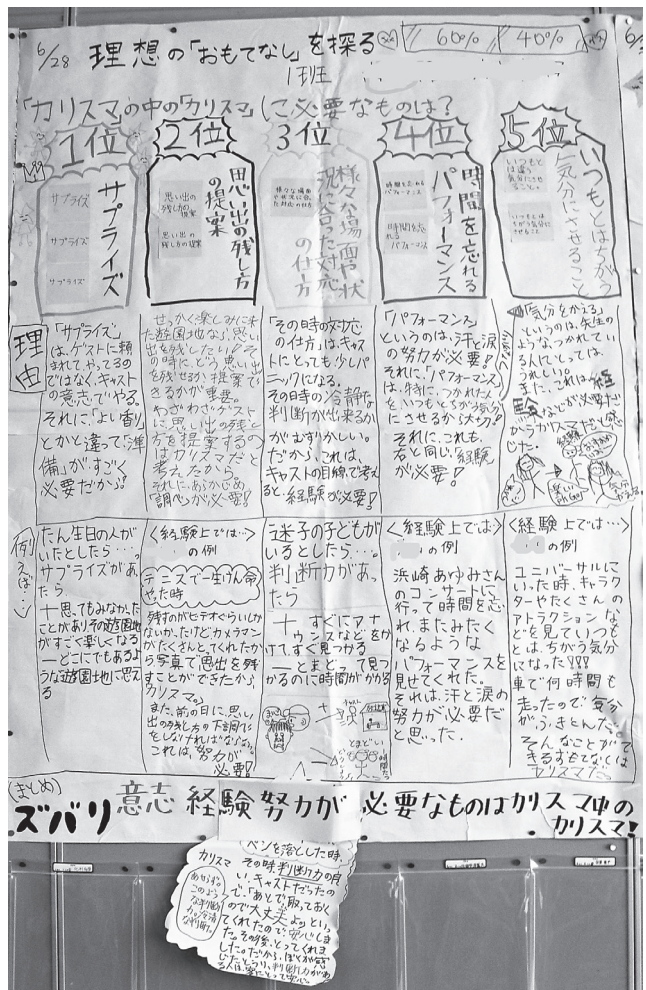 6/28 理想の「おもてなし」を探る
60% 40%
1班
「カリスマの中の「カリスマ」に必要なものは?
1位
サプライズ
サプライズ
サプライズ
サプライズ
2位
思い出の残し方
の提案
思い出の
残し方の提案
思い出の
残し方の提案
3位
様々な場面や状
況に合った対応
の仕方
様々な場面
や状況に合っ
た対応の仕方
4位
時間を忘れる
パフォーマンス
時間を忘れる
パフォーマンス
時間を忘
れる
パフォーマンス
5位
いつもとはちがう
気分にさせること
いつもと
は違う
気分にさせ
ること。
いつもとは
ちがう気分に
させること
理由
「サプライズ」
は、ゲストに頼
まれて、やってるの
ではなく、キャスト
の意志でやる。
それに、「よい香り」
とかと違って、「準
備」が、すごく
必要だから!
せっかく楽しみに来
た遊園地など、思い
出を残したい!?そ
の時に、どう思い出
を残せるか提案で
きるかが重要。
わざわざゲスト
に思い出の残し
方を提案するの
はカリスマだと
考えたから。
それに、あらかじめ
「調べ」が必要!
「その時の対応
の仕方」は、キャス
トにとっても少しパ
ニックになる。
その時の冷静な
判断が出来るか
がむずかしい。
だから、これは、
キャストの目線で考え
ると、経験が必要!
「パフォーマンス」
というのは、汗と涙
の努力が必要!
それに、「パフォーマンス」
は、特に、つかれた人
をいつもとちがう気分
にさせるから大切!
それに、これも、
右と同じ、経験
が必要!
「気分をかえる」
というのは、先生の
ような、つかれてい
る人にとっては
うれしい。
また、これは、経
験などが必要だ
からカリスマだと感
じた。
例えば…
たん生日の人が
いたとしたら…。
サプライズがあっ
たら
十 思ってもみなかった
ことがありその遊園地
がすごく楽しくなる
一 どこにでもあるよ
うな遊園地に思え
る
〈経験上では…〉
の例
テニスで一生けん命
やった時
残すのがビデオぐらいしか
ないか、だけどカメラマン
がたくさんとってくれたか
ら写真で思い出を残す
ことができたから、
カリスマ。
また、前の日に、思い
出の残し方の下調べ
をしなければならない。
これは、努力が
必要!
迷子の子どもが
いるとしたら…。
判断力があっ
たら
十 すぐにアナ
ウンスなどをか
けて、すぐ見つかる
一 とまどって見つ
かるのに時間がかかる
〈経験上では…〉
の例
浜崎あゆみさん
のコンサートに
行って時間を忘
れ、またみたく
なるような
パフォーマンスを
見せてくれた。
それは、汗と涙の
努力が必要だ
と思った。
〈経験上では…〉
の例
ユニバーサルに
いった時、キャラク
ターやたくさんの
アトラクション な
どを見ていつも
とは、ちがう気分
になった!!!
車で何時間も
走ったので気分
が、ふきとんだ。
そんなことがで
きるおもてなしは
カリスマだ。
(まとめ)
ズバリ 意志 経験 努力が 必要なものはカリスマ中の
カリスマ!
ペンを落とした時、
その時、判断力の良
い、キャストだったの
で、「あとで、取っておく
ので大丈夫」といっ
てくれたので、安心しま
した。その後、とってくれま
した。だから、ぼくが感
カリスマ